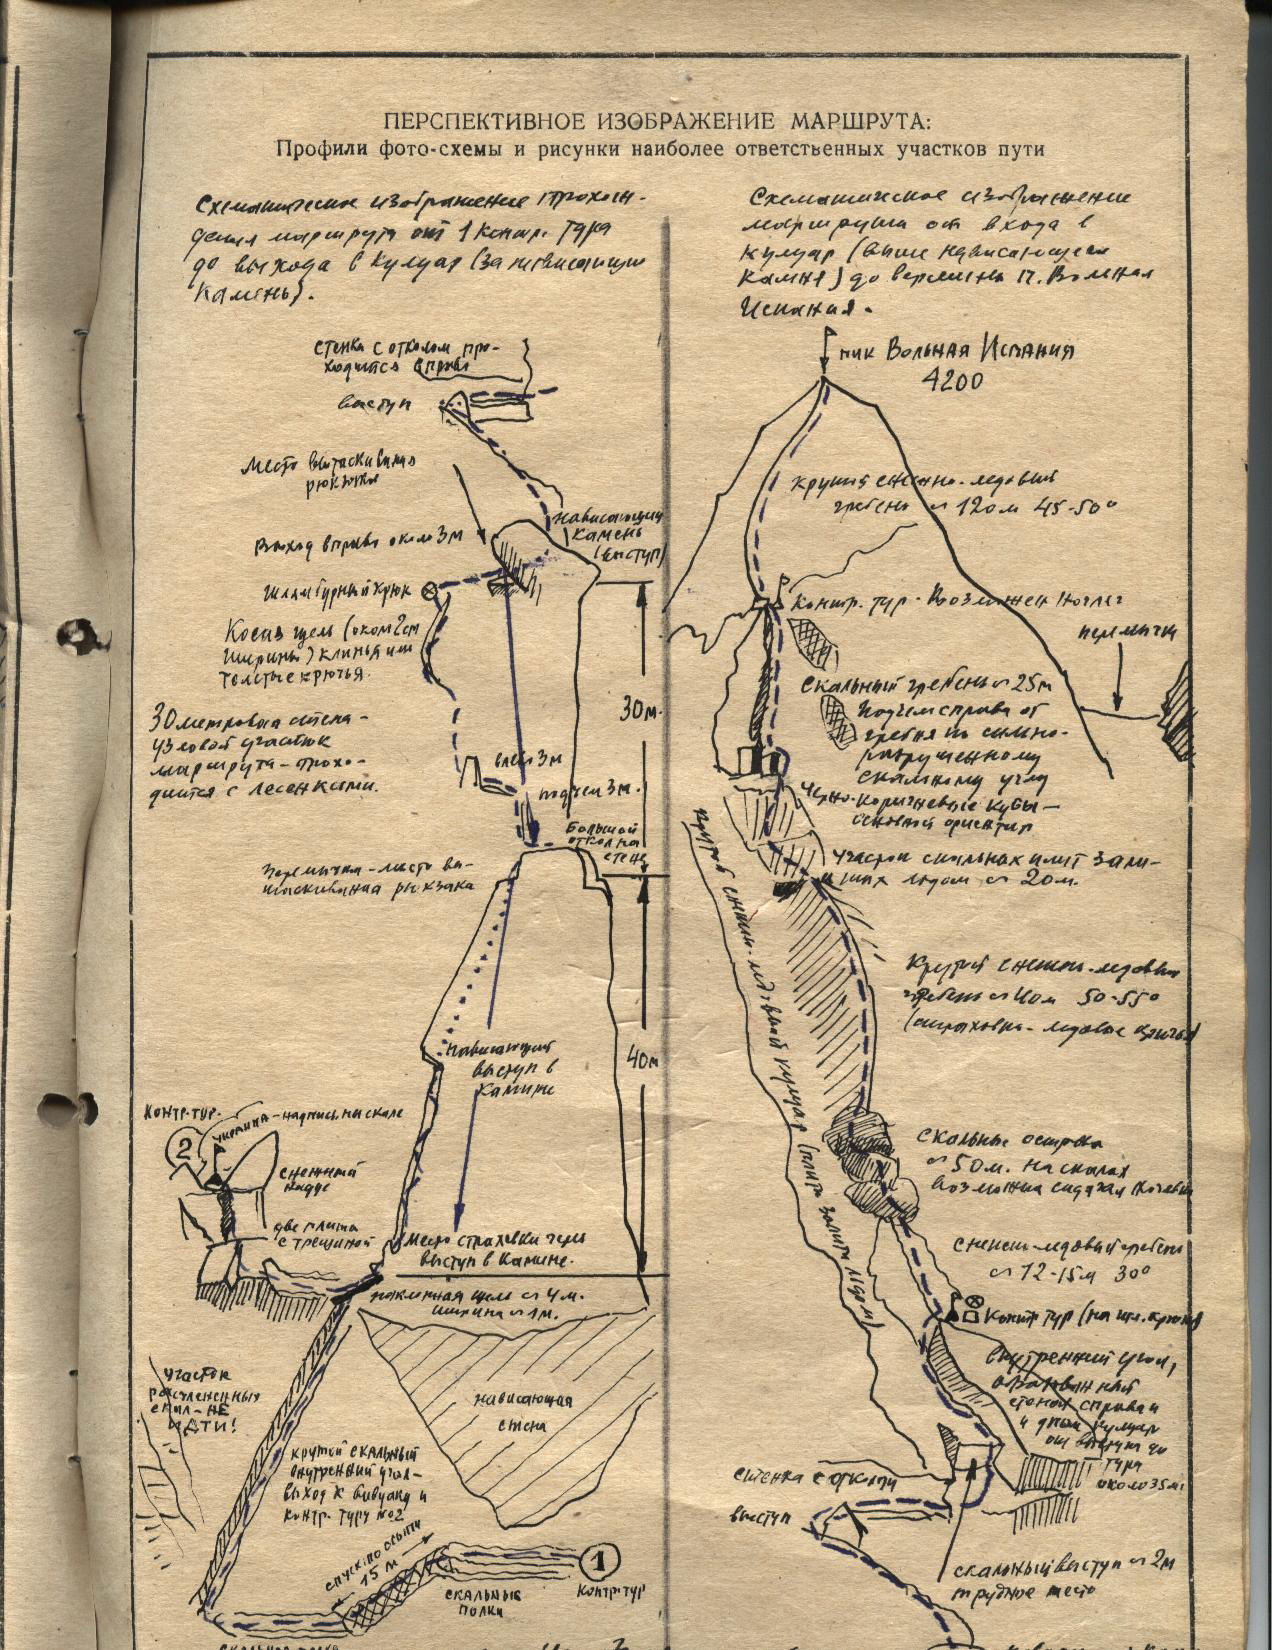 ПЕРСПЕКТИВНОЕ ИЗОБРАЖЕНИЕ МАРШРУТА:
Профили фото-схемы и рисунки наиболее ответственных участков пути
Схематическое изображение прохож-
дения маршрута от 1 контр. тура
до выхода в кулуар (за нависающий
камень).
стенка с отколом про-
ходится вправо
выступ
Место вытаскивания
рюкзака
нависающий
камень
(выступ)
Выход вправо около 3м
шлямбурный крюк
Косая щель (около 2см
ширины) клинья или
толстые крючья.
30м.
30 метровая стена -
узловой участок
маршрута - прохо-
дится с лесенками.
влево 3м
подъем 3м.
Большой
откол на
стене
Перемычка - место вы-
таскивания рюкзака
нависающий
выступ в
камине
40м
контр. тур.
2
Украина - надпись на скале
снежный
надув
две плиты
с трещиной
Место страховки через
выступ в камине.
наклонная щель ~ 4м.
ширина ~ 1м.
участок
расчлененных
скал - НЕ
ИДТИ!
нависающая
стена
крутой скальный
внутренний угол -
выход к бивуаку и
контр. туру №2
спуск по осыпи
15 м
скальные
полки
1
контр. тур
Схематическое изображение
маршрута от входа в
кулуар (выше нависающего
камня) до вершины п. Вольная
Испания.
пик Вольная Испания
4200
крутой снежно-ледовый
гребень ~ 120м 45-50°
Контр. тур. Возможен ночлег
перемычка
Скальный гребень ~ 25м
Подъем справа от
гребня по сильно-
разрушенному
скальному углу
Черно-коричневые кубы -
основной ориентир
Участок скальных плит зали-
тых льдом ~ 20м.
крутой снежно-ледовый кулуар (плиты залиты льдом)
Крутой снежно-ледовый
гребень ~ 40м 50-55°
(страховка - ледовые крючья)
Скальные острова
~ 50м. на скалах
возможна сидячая ночевка
Снежно-ледовый гребень
~ 12-15м 30°
Контр тур (на шл. крюке)
внутренний угол,
стеной справа и
и дном кулуара
от выступа до
тура
около 35м.
стенка с отколом
выступ
скальный выступ ~ 2м
трудное место